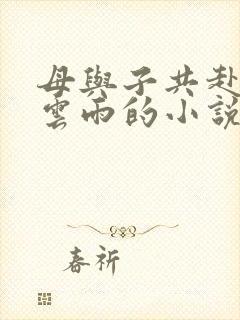 母與子共赴
雲雨的小說
春祈